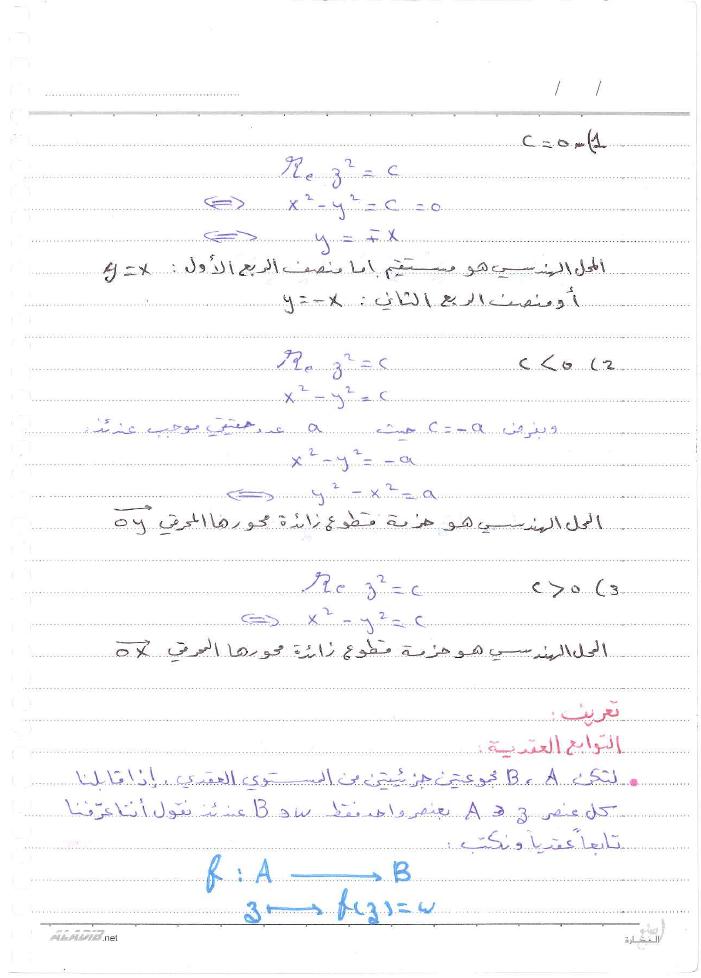 / /
1)- c = 0
Re z² = c
⟺ x² - y² = c = 0
⟺ y = ∓x
المحل الهندسي هو مستقيم إما منصف الربع الأول : y = x
أو منصف الربع الثاني : y = -x
2) c < 0
Re z² = c
x² - y² = c
وبفرض c = -a حيث a عدد حقيقي موجب عندئذ:
x² - y² = -a
⟺ y² - x² = a
المحل الهندسي هو حزمة قطوع زائدة محورها المحرقي oy
3) c > 0
Re z² = c
⟺ x² - y² = c
المحل الهندسي هو حزمة قطوع زائدة محورها المحرقي ox
تعريف :
التوابع العقدية :
• لتكن A ، B مجموعتين جزئيتين من المستوي العقدي ، إذا قابلنا
كل عنصر z ∈ A بعنصر واحد فقط w ∈ B عندئذ نقول أننا عرّفنا
تابعاً عقدياً ونكتب :
f : A ⟶ B
z ⟼ f(z) = w
ALADIB.net